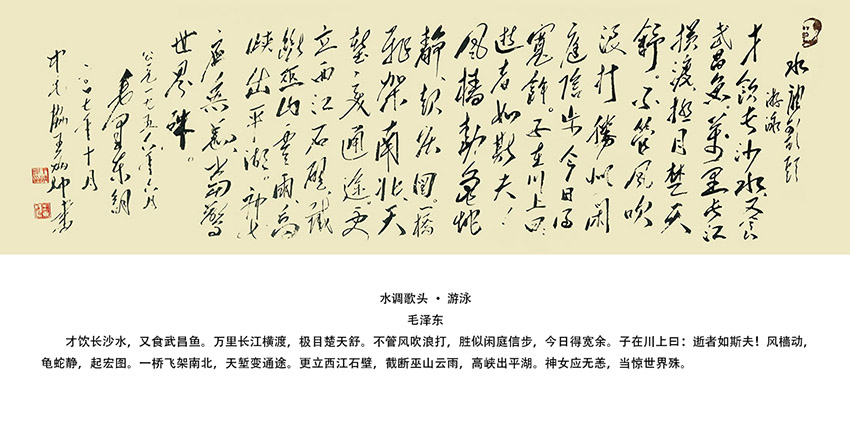 水调歌头
游泳
才饮长沙水，又食
武昌鱼。万里长江
横渡，极目楚天
舒。不管风吹
浪打，胜似闲
庭信步，今日得
宽馀。子在川上曰：
逝者如斯夫！
风樯动，龟蛇
静，起宏图。一桥
飞架南北，天
堑变通途。更
立西江石壁，截
断巫山云雨，高
峡出平湖。神女
应无恙，当惊
世界殊。
公元一九五六年六月
毛泽东词
二〇〇七年十月
水调歌头 · 游泳
毛泽东
才饮长沙水，又食武昌鱼。万里长江横渡，极目楚天舒。不管风吹浪打，胜似闲庭信步，今日得宽余。子在川上曰：逝者如斯夫！风樯动，
龟蛇静，起宏图。一桥飞架南北，天堑变通途。更立西江石壁，截断巫山云雨，高峡出平湖。神女应无恙，当惊世界殊。